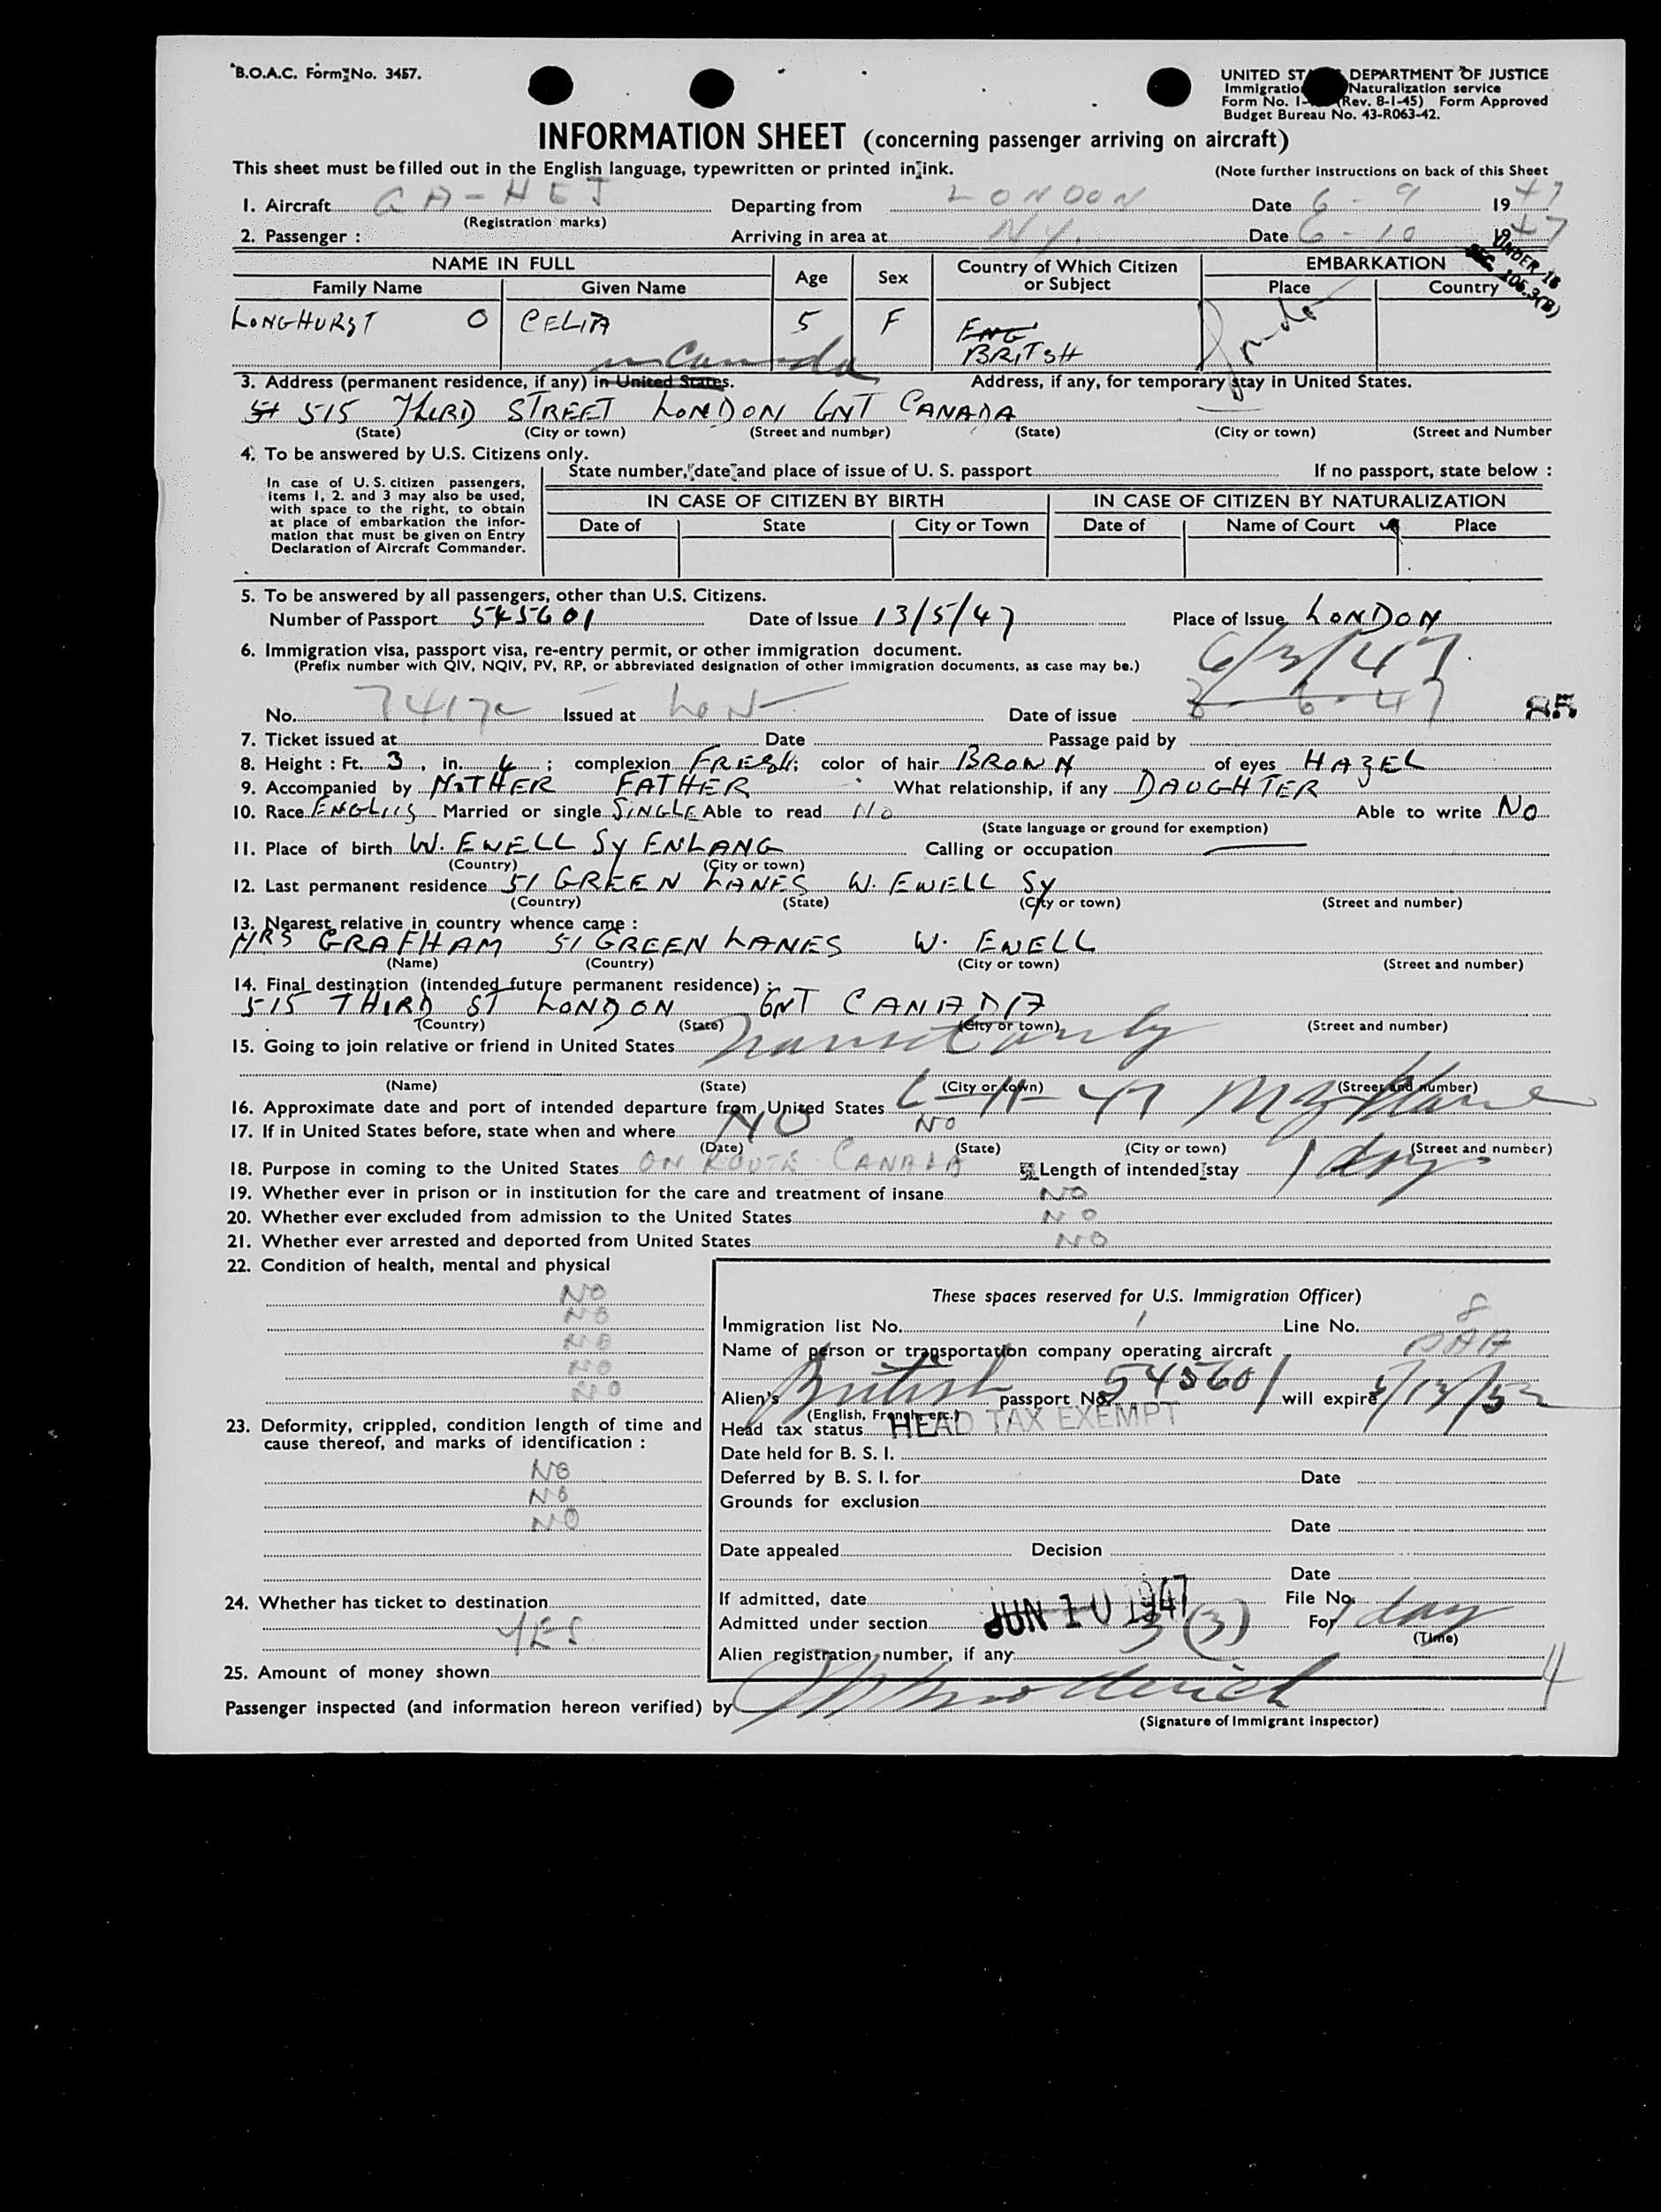 B.O.A.C. Form No. 3457.
UNITED ST DEPARTMENT OF JUSTICE
Immigratio Naturalization service
Form No. I- (Rev. 8-1-45) Form Approved
Budget Bureau No. 43-R063-42.
INFORMATION SHEET (concerning passenger arriving on aircraft)
This sheet must be filled out in the English language, typewritten or printed in ink. (Note further instructions on back of this Sheet
1. Aircraft GA-HEJ Departing from LONDON Date 6 - 9 1947
(Registration marks)
2. Passenger : Arriving in area at N.Y. Date 6 - 10 1947
UNDER 16
SEC. 105.3(B)
NAME IN FULL Age Sex Country of Which Citizen or Subject EMBARKATION
Family Name Given Name Place Country
LONGHURST O CELIA 5 F ENG London
BRITSH
in Canada
3. Address (permanent residence, if any) in United States. Address, if any, for temporary stay in United States.
St 515 THIRD STREET LONDON ONT CANADA
(State) (City or town) (Street and number) (State) (City or town) (Street and Number
4. To be answered by U.S. Citizens only.
State number, date and place of issue of U. S. passport If no passport, state below :
In case of U.S. citizen passengers,
items 1, 2. and 3 may also be used,
with space to the right, to obtain
at place of embarkation the infor-
mation that must be given on Entry
Declaration of Aircraft Commander.
IN CASE OF CITIZEN BY BIRTH IN CASE OF CITIZEN BY NATURALIZATION
Date of State City or Town Date of Name of Court Place
5. To be answered by all passengers, other than U.S. Citizens.
Number of Passport 545601 Date of Issue 13/5/47 Place of Issue LONDON
6. Immigration visa, passport visa, re-entry permit, or other immigration document.
(Prefix number with QIV, NQIV, PV, RP, or abbreviated designation of other immigration documents, as case may be.)
6/3/47
No. Issued at LON Date of issue 3 - 6 - 47 85
7. Ticket issued at Date Passage paid by
8. Height : Ft. 3 , in. 4 ; complexion FRESH; color of hair BROWN of eyes HAZEL
9. Accompanied by MOTHER FATHER What relationship, if any DAUGHTER
10. Race ENGLIS Married or single SINGLE Able to read NO Able to write NO
(State language or ground for exemption)
11. Place of birth W. EWELL Sy ENLANG Calling or occupation
(Country) (City or town)
12. Last permanent residence 51 GREEN LANES W. EWELL Sy
(Country) (State) (City or town) (Street and number)
13. Nearest relative in country whence came :
MRS GRAFHAM 51 GREEN LANES W. EWELL
(Name) (Country) (City or town) (Street and number)
14. Final destination (intended future permanent residence) :
515 THIRD ST LONDON ONT CANADA
(Country) (State) (City or town) (Street and number)
15. Going to join relative or friend in United States Transit only
(Name) (State) (City or town) (Street and number)
16. Approximate date and port of intended departure from United States 6-11-47 NY Plane
17. If in United States before, state when and where NO NO
(Date) (State) (City or town) (Street and number)
18. Purpose in coming to the United States ON ROUTE CANADA Length of intended stay 1 day
19. Whether ever in prison or in institution for the care and treatment of insane NO
20. Whether ever excluded from admission to the United States NO
21. Whether ever arrested and deported from United States NO
22. Condition of health, mental and physical
NO
NO
NO
NO
NO
23. Deformity, crippled, condition length of time and
cause thereof, and marks of identification :
NO
NO
NO
24. Whether has ticket to destination
YES
25. Amount of money shown
These spaces reserved for U.S. Immigration Officer)
Immigration list No. 1 Line No. 8
Name of person or transportation company operating aircraft
Alien's British passport No. 545601 will expire 5/13/52
(English, French, etc.)
Head tax status HEAD TAX EXEMPT
Date held for B. S. I.
Deferred by B. S. I. for Date
Grounds for exclusion
Date
Date appealed Decision
Date
If admitted, date JUN 10 1947 File No.
Admitted under section 3 (3) For 1 day
(Time)
Alien registration number, if any
4
Passenger inspected (and information hereon verified) by
(Signature of Immigrant inspector)